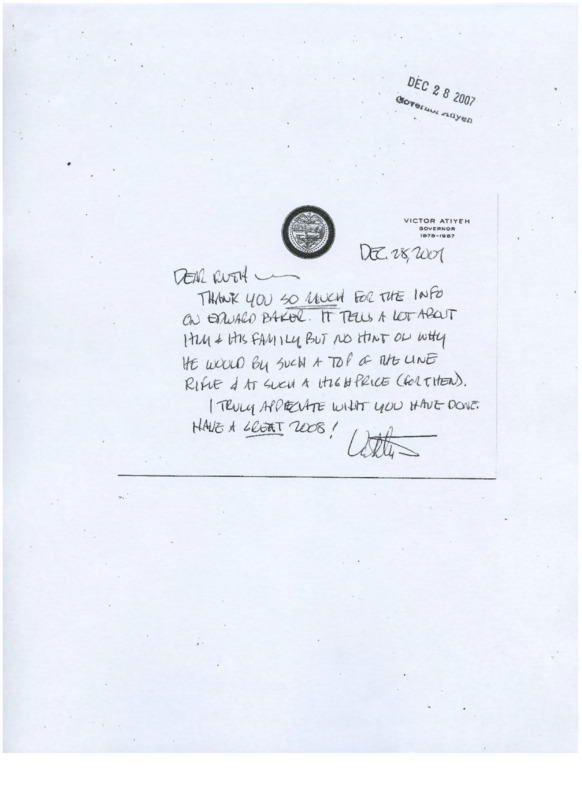 DEC 28 2007
Governor Atiyeh
VICTOR ATIYEH
GOVERNOR
1979-1987
DEC. 28, 2007
DEAR RUTH
THANK YOU SO MUCH FOR THE INFO
ON EDWARD BAKER. IT TELLS A LOT ABOUT
HIM & HIS FAMILY BUT NO HINT ON WHY
HE WOULD BY SUCH A TOP OF THE LINE
RIFLE & AT SUCH A HIGH PRICE (FOR THEN).
I TRULY APPRECIATE WHAT YOU HAVE DONE.
HAVE A GREAT 2008!